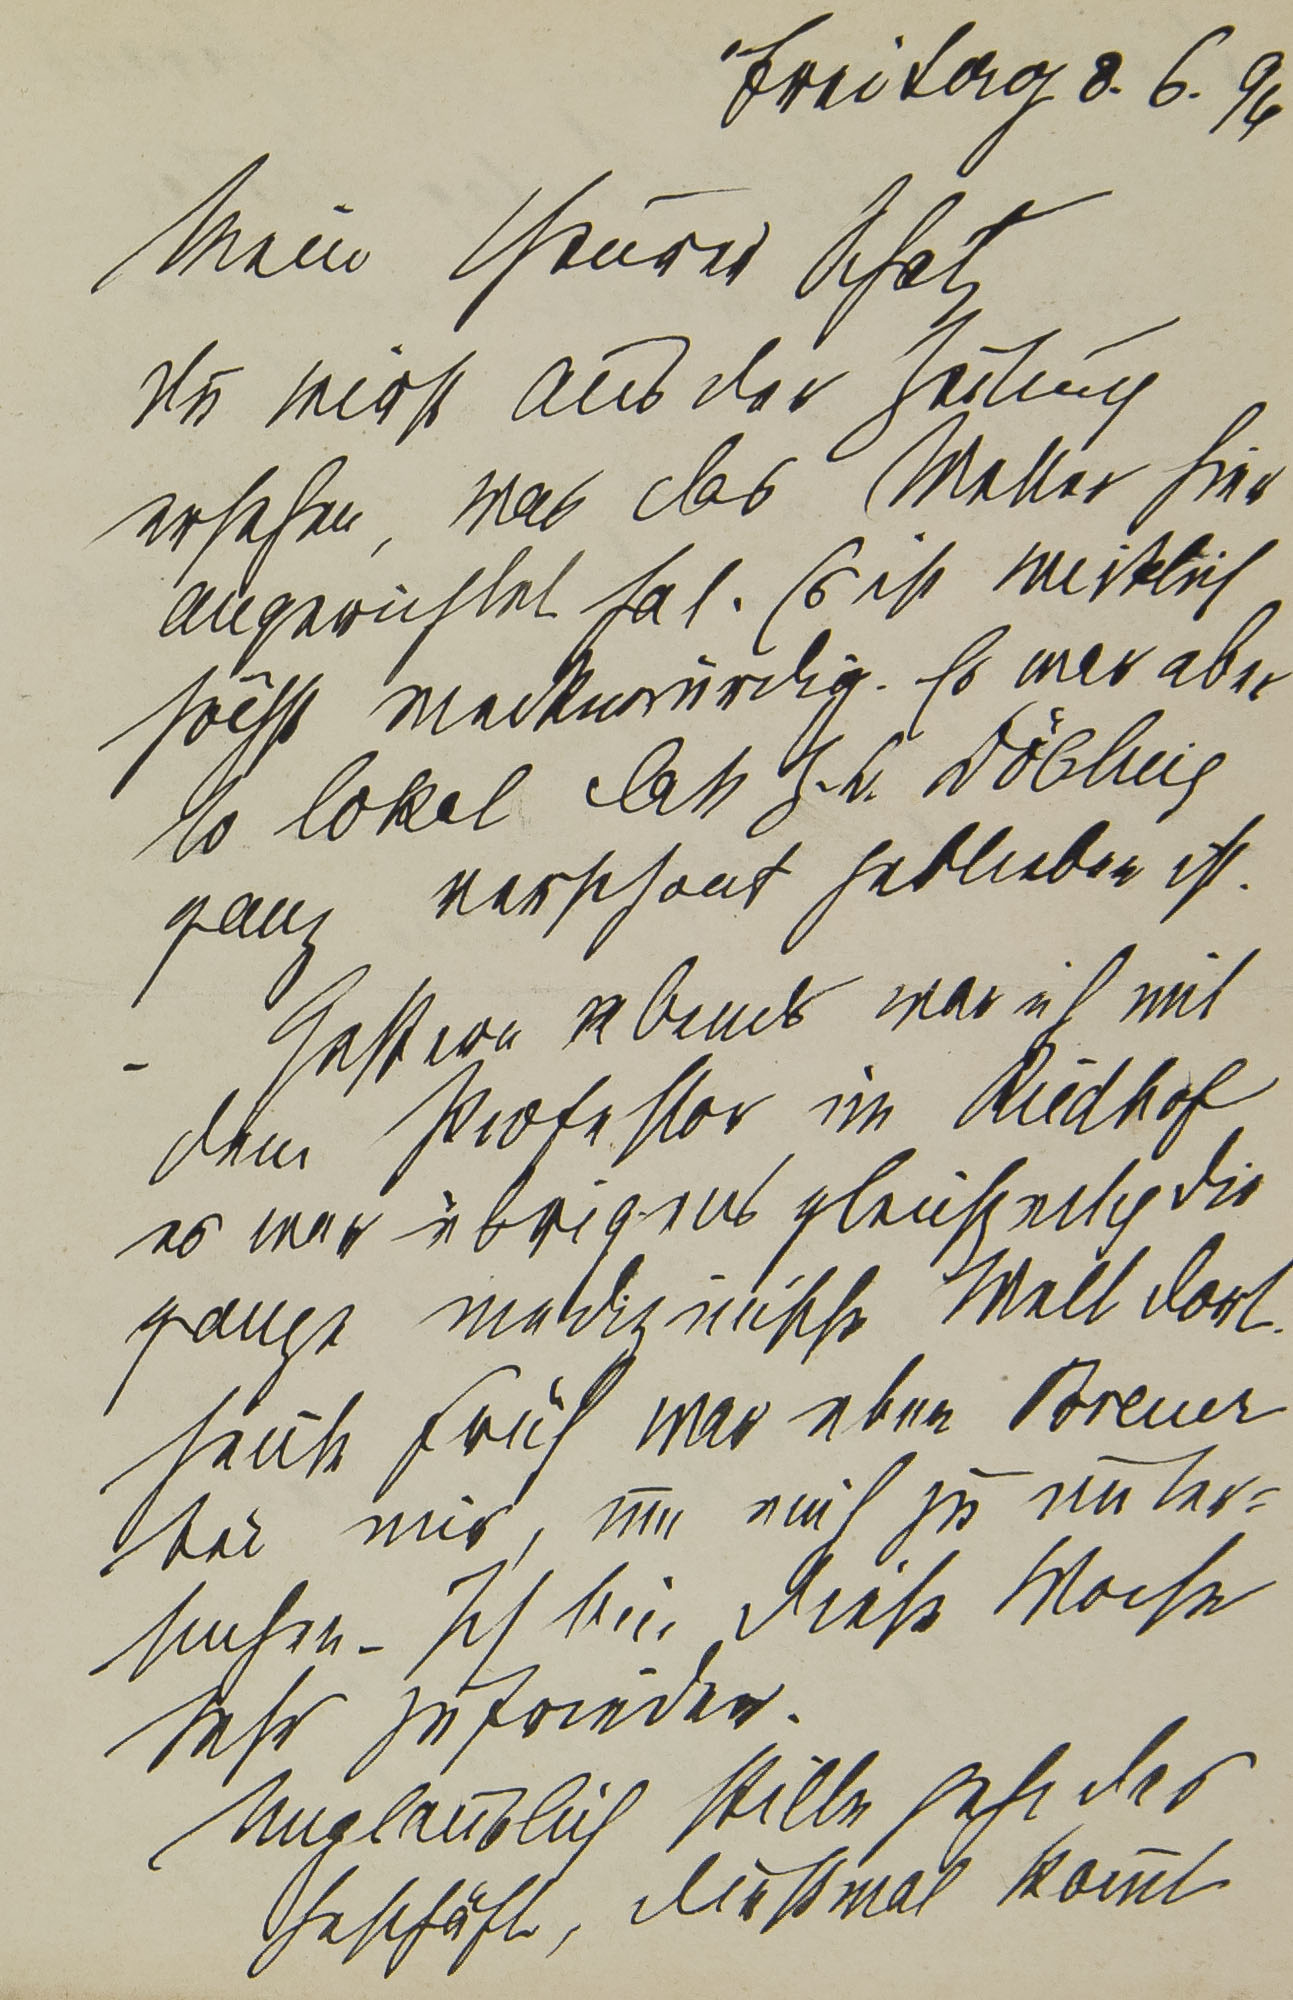 Freitag 8. 6. 94
Mein theurer Schatz
Du wirst aus der Zeitung
ersehen, was das Wetter hier
angerichtet hat. Es ist wirklich
höchst merkwürdig. Es war aber
so lokal dass z.B. Döbling
ganz verschont geblieben ist.
- Gestern abends war ich mit
dem Professor im Riedhof
es war übrigens gleichzeitig die
ganze medizinische Welt dort.
Heute früh war eben Breuer
bei mir, um mich zu unter=
suchen - Ich bin diese Woche
sehr zufrieden.
Unglaublich stille geht das
Geschäft, diesmal kom̄t